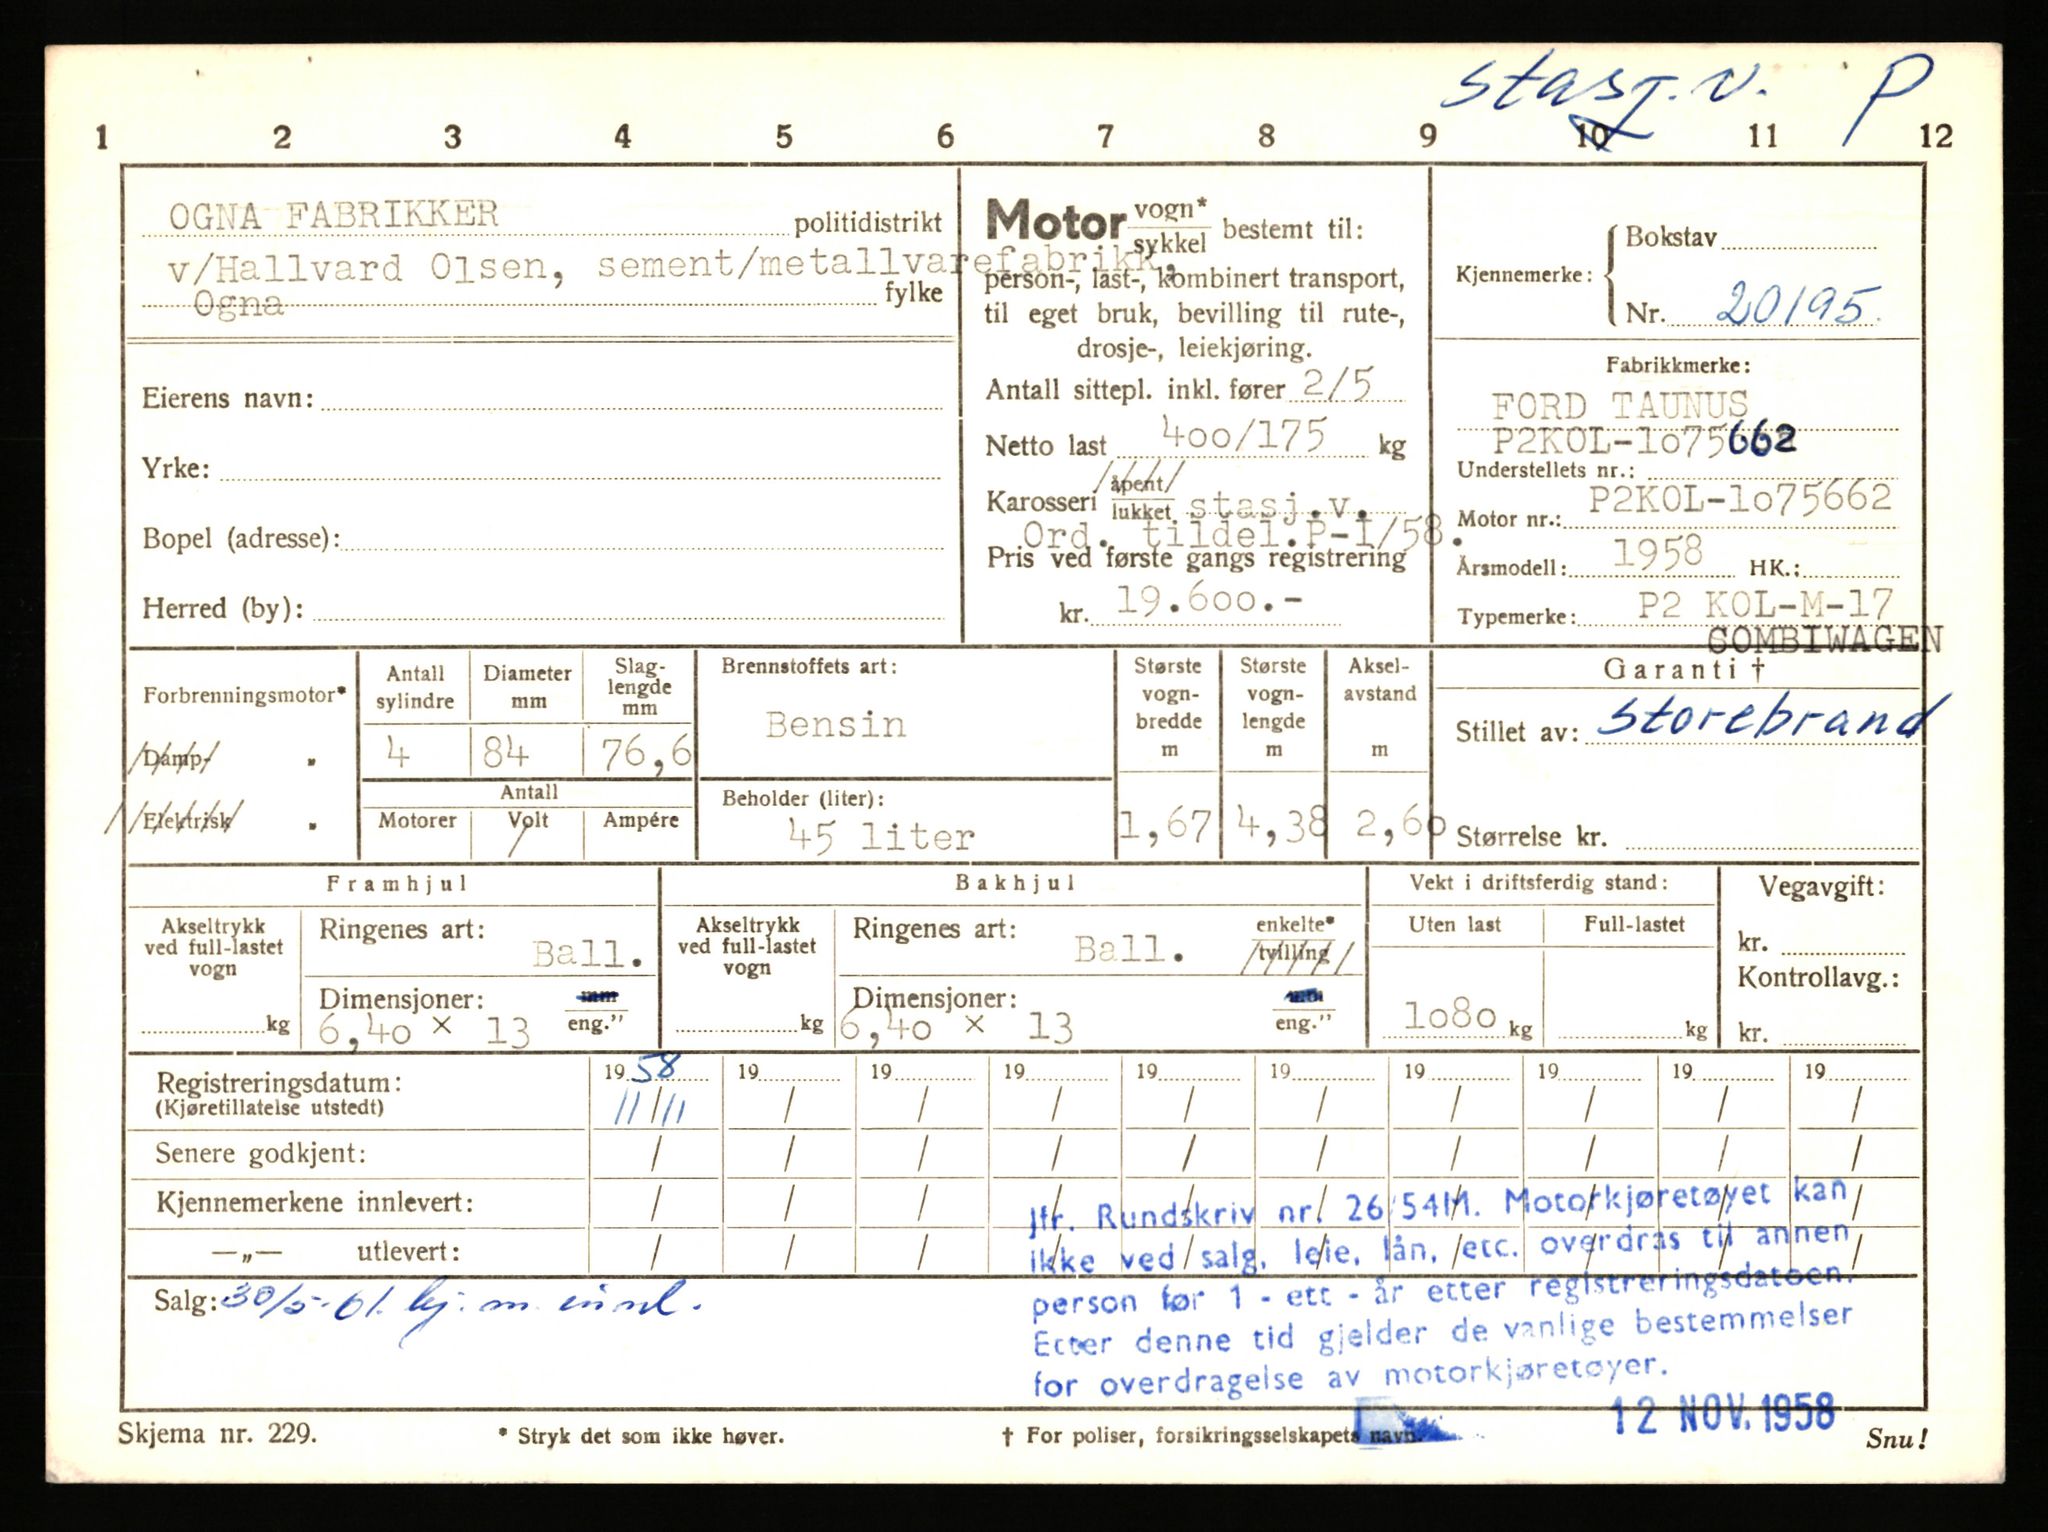 stasj.v. P
1 2 3 4 5 6 7 8 9 10 11 12
OGNA FABRIKKER politidistrikt
v/Hallvard Olsen, sement/metallvarefabrikk,
Ogna fylke
Eierens navn:
Yrke:
Bopel (adresse):
Herred (by):
Motor vogn* sykkel bestemt til:
person-, last-, kombinert transport,
til eget bruk, bevilling til rute-,
drosje-, leiekjøring.
Antall sittepl. inkl. fører 2/5
Netto last 400/175 kg
Karosseri åpent lukket stasj.v.
Ord. tildel.P-1/58.
Pris ved første gangs registrering
kr. 19.600.-
Kjennemerke: Bokstav
Nr. 20195.
Fabrikkmerke:
FORD TAUNUS
P2KOL-1075662
Understellets nr.:
Motor nr.: P2KOL-1075662
Årsmodell: 1958 HK.:
Typemerke: P2 KOL-M-17
COMBIWAGEN
Forbrenningsmotor*
Damp- "
Elektrisk "
Antall sylindre
Diameter mm
Slag-lengde mm
4 84 76,6
Antall
Motorer Volt Ampére
Brennstoffets art:
Bensin
Beholder (liter):
45 liter
Største vogn-bredde m
Største vogn-lengde m
Aksel-avstand m
1,67 4,38 2,60
Garanti †
Stillet av: Storebrand
Størrelse kr.
Framhjul
Akseltrykk ved full-lastet vogn
kg
Ringenes art:
Ball.
Dimensjoner: mm eng."
6,40 × 13
Bakhjul
Akseltrykk ved full-lastet vogn
kg
Ringenes art: enkelte* tvilling
Ball.
Dimensjoner: eng."
6,40 × 13
Vekt i driftsferdig stand:
Uten last Full-lastet
1080 kg kg
Vegavgift:
kr.
Kontrollavg.:
kr.
Registreringsdatum: 1958 19 19 19 19 19 19 19 19 19
(Kjøretillatelse utstedt) 11/11 / / / / / / / / /
Senere godkjent: / / / / / / / / / /
Kjennemerkene innlevert: / / / / / / / / / /
—„— utlevert: / / / / / / / / / /
Jfr. Rundskriv nr. 26/54M. Motorkjøretøyet kan
ikke ved salg, leie, lån, etc. overdras til annen
person før 1 - ett - år etter registreringsdatoen.
Etter denne tid gjelder de vanlige bestemmelser
for overdragelse av motorkjøretøyer.
Salg: 30/5-61. kj.m.
12 NOV. 1958
Skjema nr. 229. * Stryk det som ikke høver. † For poliser, forsikringsselskapets navn. Snu!